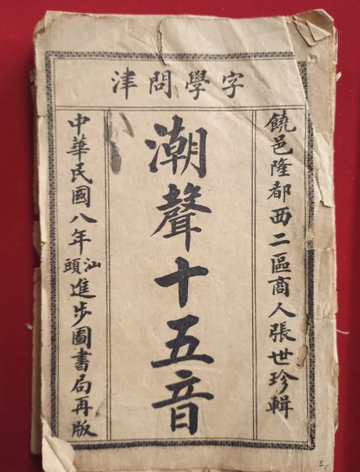 字學問津
饒邑隆都西二區商人張世珍輯
潮聲十五音
中華民國八年汕頭進步圖書局再版